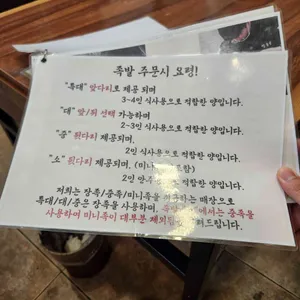 족발 주문시 요령!
"특대" 앞다리로 제공 되며
3~4인 식사용으로 적합한 양입니다.
"대" 앞/뒤 선택 가능하며
2~3인 식사용으로 적합한 양입니다.
"중" 뒷다리 제공되며.
2인 식사용으로 적합한 양입니다.
"소" 뒷다리 제공되며, (미니
2인 적합한 양입니다.
저희는 장족/중족/미니족을 매장으로
특대/대/중은 장족을 사용하며, 에서는 중족을
사용하며 미니족이 대부분